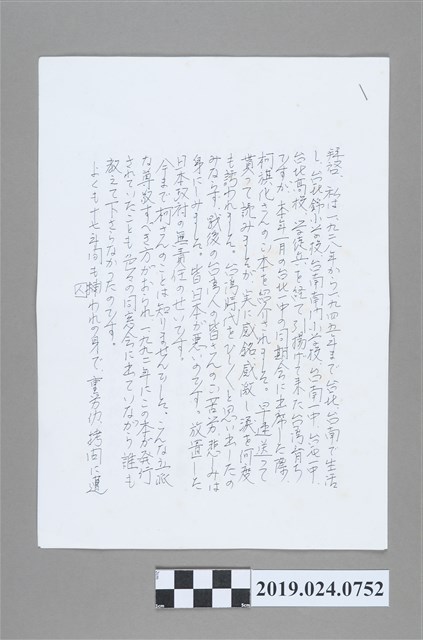 拝啓、私は一九二八年から一九四五年まで台北、台南で生活
し、台北錦小学校、台南南門小学校、台南一中、台北一中、
台北高校、学徒兵を経て引揚げて来た台湾育ち
ですが、本年一月の台北一中の同期会に出席した際
柯旗化さんのご本を紹介されました。早速送って
貰って読みましたが、実に感銘、感激し涙を何度
も誘われました。台湾時代をひしひしと思い出したの
みならず、戦後の台湾人の皆さんのご苦労、悲しみは
身にしみました。皆日本が悪いのです。放置した
日本政府の無責任のせいです。
今まで柯さんのことは知りませんでした。こんな立派
な尊敬すべき方がおられ、一九九二年にこの本が発行
されていたことも、各々の同窓会に出ていながら誰も
教えて下さらなかったのです。
よくも十七年間も捕われの身で、重労働、拷問に
囚
2cm
5cm
2019.024.0752